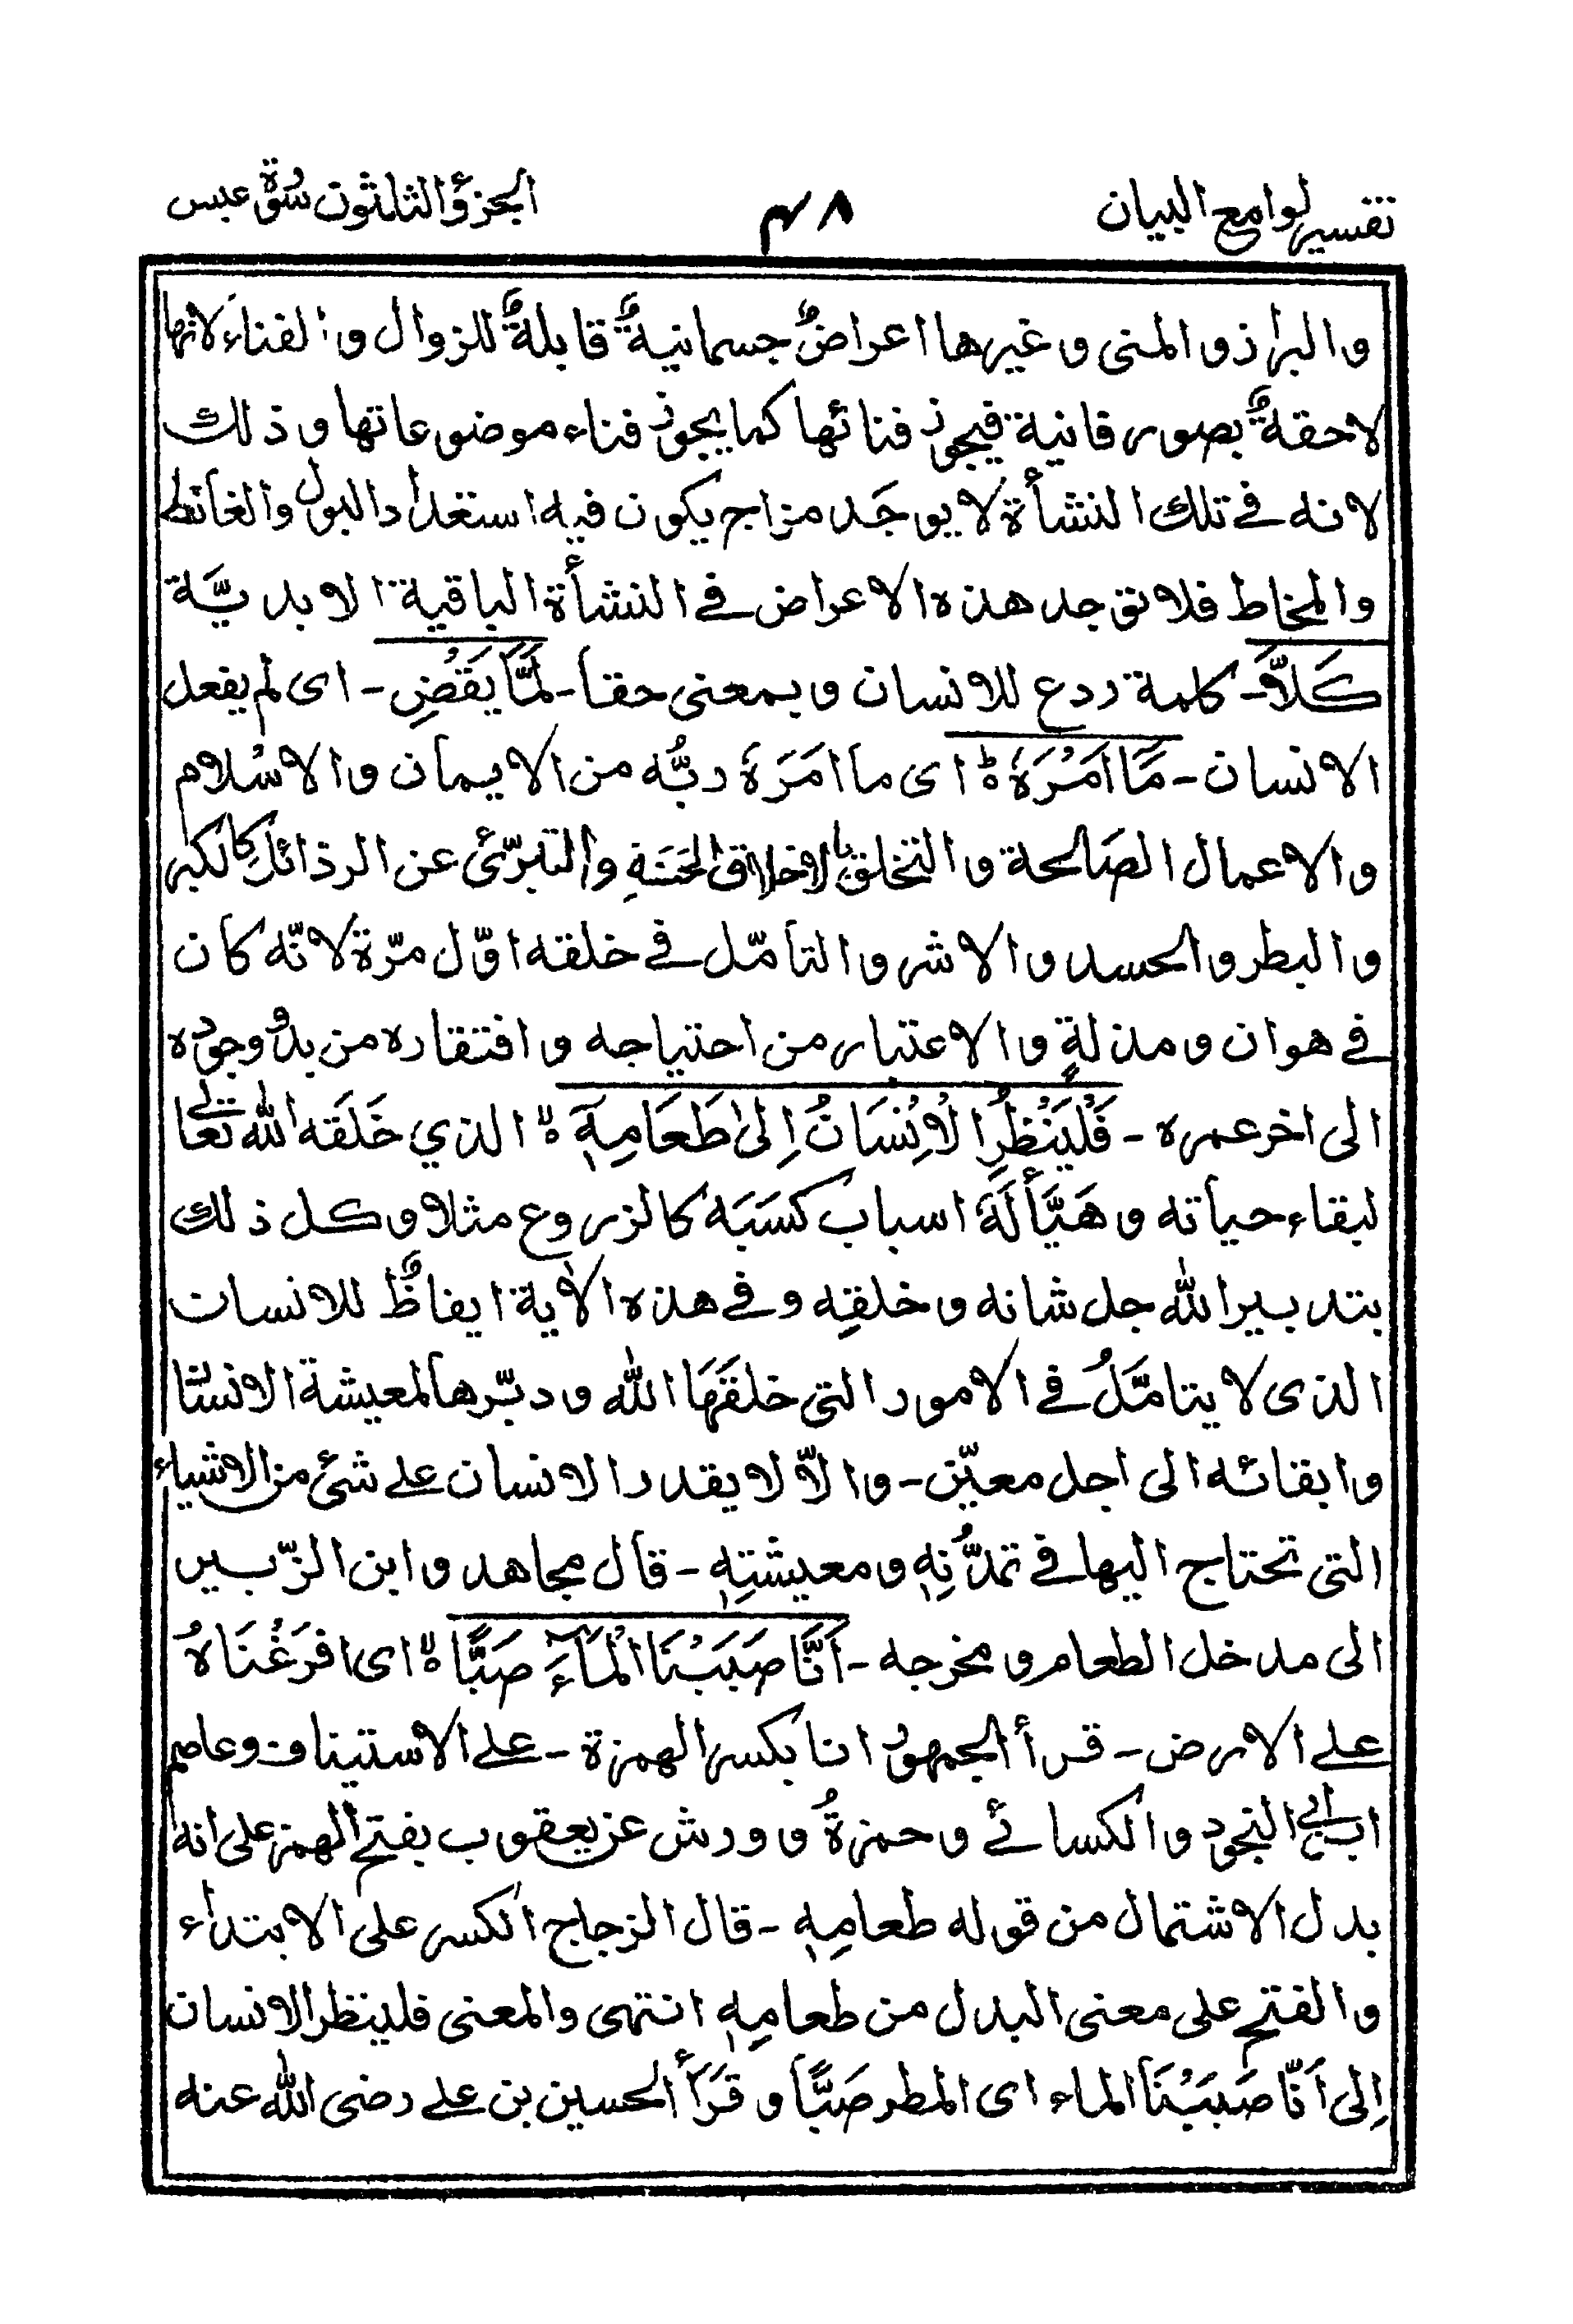 تفسیر لوامع البیان
۴۸
الجزؤ الثلثون سورة عبس
والبراز و المنی و غیرها اعراضٌ جسمانیةٌ قابلةٌ للزوال و الفناء لانها
لاحقةٌ بصور فانیة فیجوز فنائها کما یجوز فناء موضوعاتها و ذلك
لانه فی تلك النشأة لا یوجَد مزاج یکون فیه استعداد البول والغائط
والمخاط فلا توجد هذه الاعراض فی النشأة الباقیة الابدیَّة
کَلَّا - کلمة ردع للانسان و بمعنی حقا - لَمَّا یَقْضِ - ای لم یفعل
الانسان - مَا اَمَرَهٗ ۃ ای ما امَرَهٗ ربُّه من الایمان والاسلام
والاعمال الصالحة و التخلق بالاخلاق الحَسَنَةِ والتبرّئ عن الرذائل کالکبر
والبطر والحسد والاشر و التامّل فی خلقه اوّل مرّة لانّه کان
فی هوان و مذلةٍ و الاعتبار من احتیاجه و افتقاره من بدو وجوده
الی اخر عمره - فَلْیَنْظُرِ الْاِنْسَانُ اِلیٰ طَعَامِهٖۤ ۙ الذي خَلَقه الله تعالیٰ
لبقاء حیاته و هَیَّأَ لَهٗ اسباب کسَبَه کالزروع مثلا و کل ذلك
بتدبیر الله جل شانه و خلقِه و فی هذه الاٰیة ایقاظٌ للانسان
الذی لا یتامَّلُ فی الامور التی خلقَهَا الله و دبّرها لمعیشة الانسان
وابقائه الی اجل معیّن - والّا لا یقدر الانسان علی شئ من الاشیاء
التی تحتاج الیها فی تمدُّنِهٖ و معیشتِهٖ - قال مجاهد و ابن الزّبیر
الی مدخل الطعام و مخرجه - اَنَّا صَبَبْنَا الْمَآءَ صَبًّا ۙ ای افرَغْنَاهُ
علی الارض - قرأ الجمهور انا بکسر الهمزة - علی الاستیناف وعاصم
ابن ابی النجود والکسائی و حمزةُ و ورش عن یعقوب بفتح الهمز علی انه
بدل الاشتمال من قوله طعامِهٖ - قال الزجاج الکسر علی الابتداء
والفتح علی معنی البدل من طعامِهٖ انتهی والمعنی فلینظر الانسان
اِلی اَنّا صَبَبْنَا الماء ای المطر صَبًّا و قَرَأَ الحسین بن علی رضی الله عنه